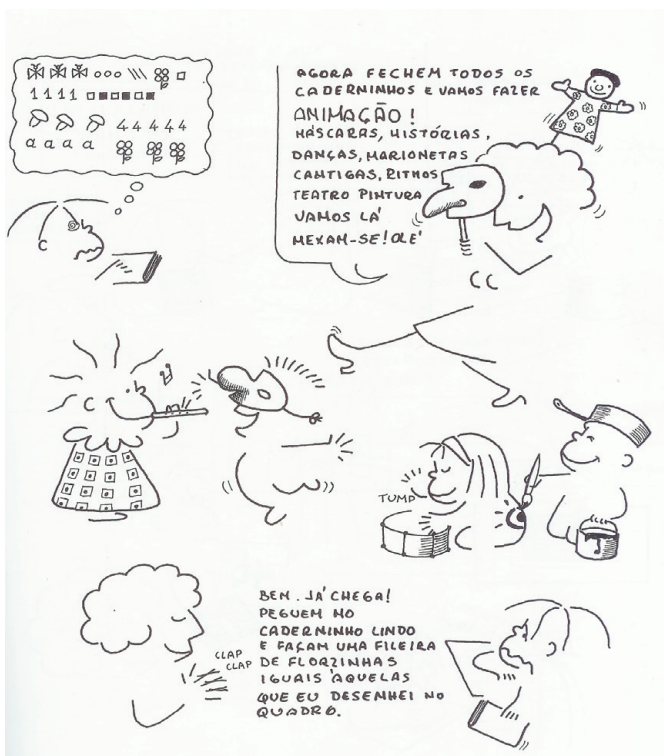 1111
44444
a a a a
AGORA FECHEM TODOS OS
CADERNINHOS E VAMOS FAZER
ANIMAÇÃO!
MÁSCARAS, HISTÓRIAS,
DANÇAS, MARIONETAS
CANTIGAS, RITMOS
TEATRO PINTURA
VAMOS LÁ
MEXAM-SE! OLÉ
TUMP
BEM. JÁ CHEGA!
PEGUEM NO
CADERNINHO LINDO
E FAÇAM UMA FILEIRA
DE FLORZINHAS
IGUAIS ÀQUELAS
QUE EU DESENHEI NO
QUADRO.
CLAP
CLAP